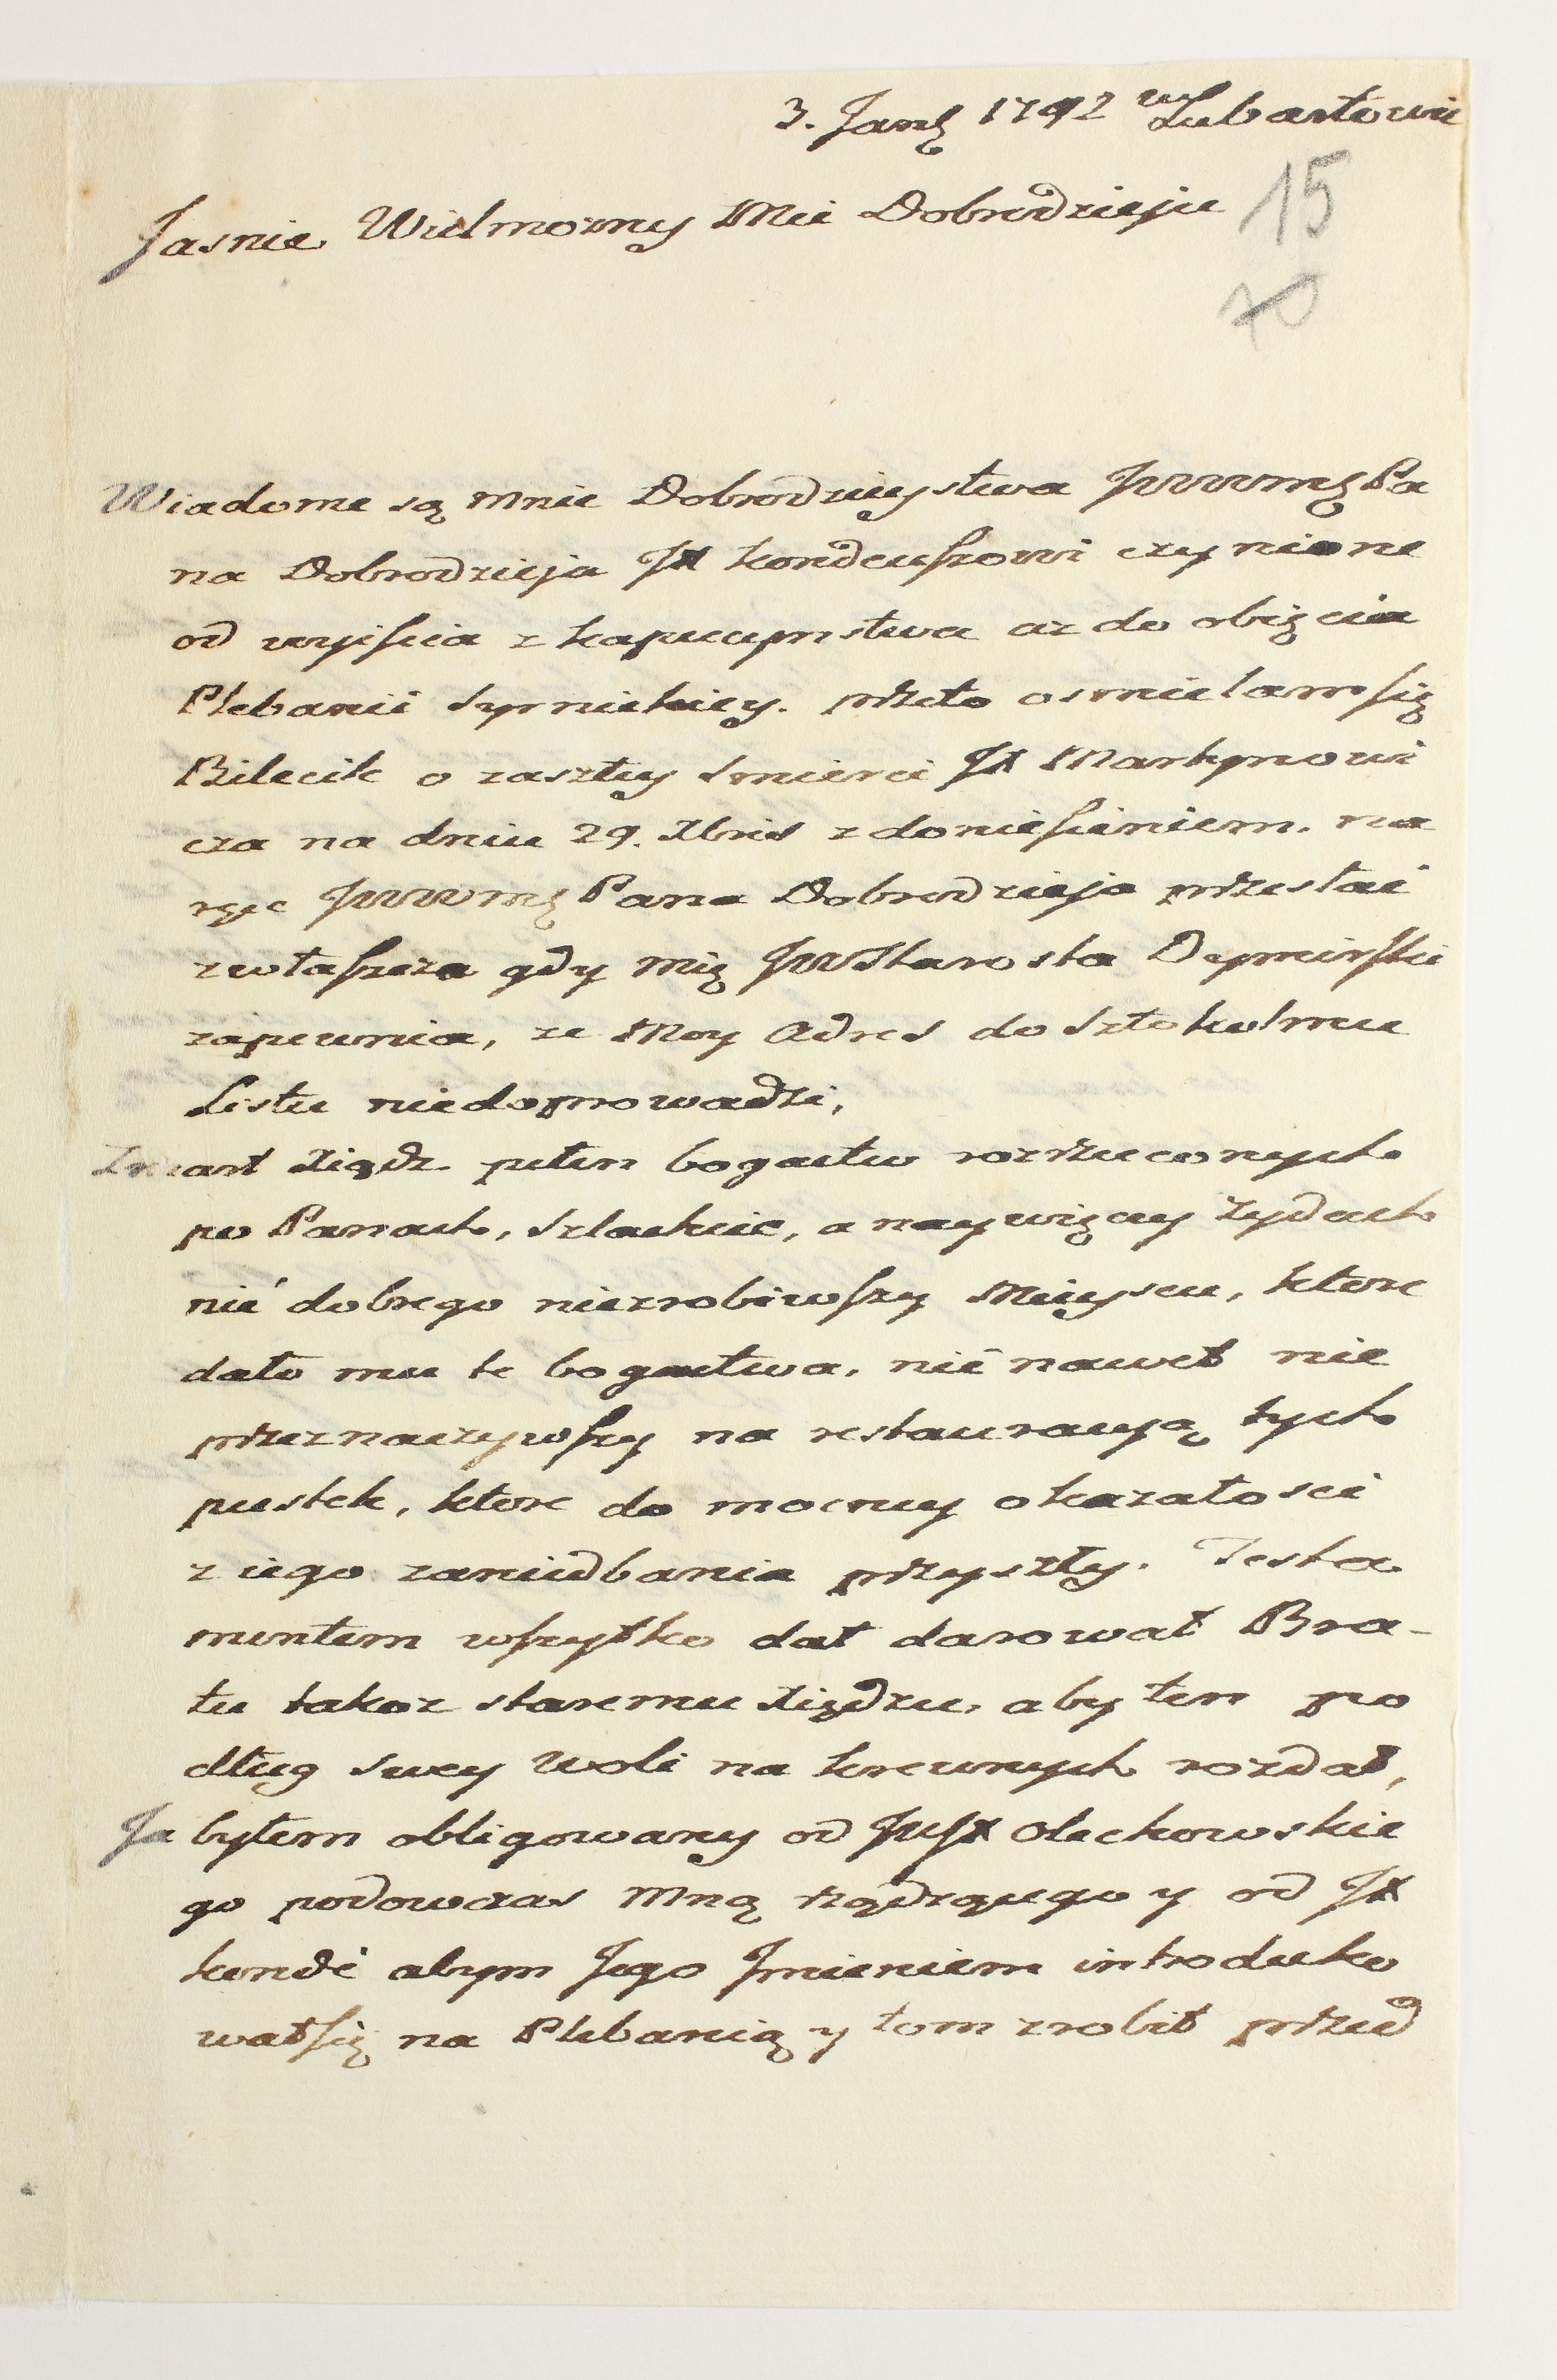 3. Jany 1792 w Lubartowie
Jasnie Wielmozny Mci Dobrodzieju
15
70
Wiadome są mnie Dobrodzieystwa JWWmę Pa
na Dobrodzieja JX kondeuszowi czynione
od wyiscia z kapucynstwa az do obięcia
Plebanii Syrnickiey. przeto osmielam się
Bilecik o zaszłey Smierci JX Martynowi
cza na dniu 29. Xbris z doniesieniem. na
ręce JWWmę Pana Dobrodzieja przesłać
zwłaszcza gdy mię JW Starosta Dymirski
zapewnia, ze Moy Adres do Sztokolmu
Listu niedoprowadzi,
Zmarł Xiądz pełen bogactw rozrzuconych
po Panach, Szlachcie, a naywięcey Żydach
nić dobrego niezrobiwszy Mieyscu, ktore
dało mu te bogactwa. nić nawet nie
przeznaczywszy na restauracyą tych
pustek, ktore do mocney okazałosci
z iego zaniedbania przyszły. Testa
mentem wszystko dał darował Bra-
tu takoz staremu Xiędzu, aby ten po
dług swey woli na krewnych rozdał,
Ja byłem obligowany od JWJX Oleckowskie
go podowczas Mną rządzącego y od JX
kondé abym Jego Jmieniem introduko
wał się na Plebanią y tom zrobił przed